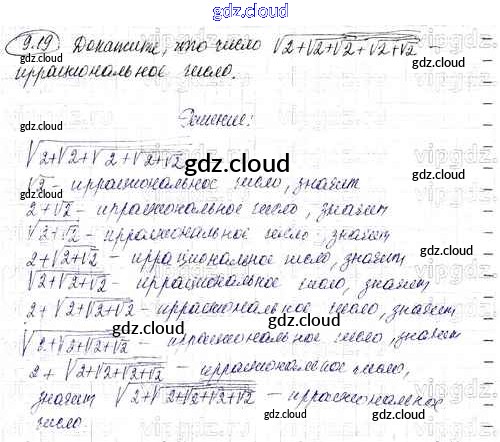 gdz.cloud
9.19 Докажите, что число √2+√2+√2+√2+√2 –
иррациональное число.
Решение:
√2+√2+√2+√2+√2
√2 - иррациональное число, значит
2+√2 - иррациональное число, значит
√2+√2 - иррациональное число, значит
2+√2+√2 - иррациональное число, значит
√2+√2+√2 - иррациональное число, значит
2+√2+√2+√2 - иррациональное число, значит
√2+√2+√2+√2 - иррациональное число, значит
2+√2+√2+√2+√2 - иррациональное число,
значит √2+√2+√2+√2+√2 - иррациональное
число.